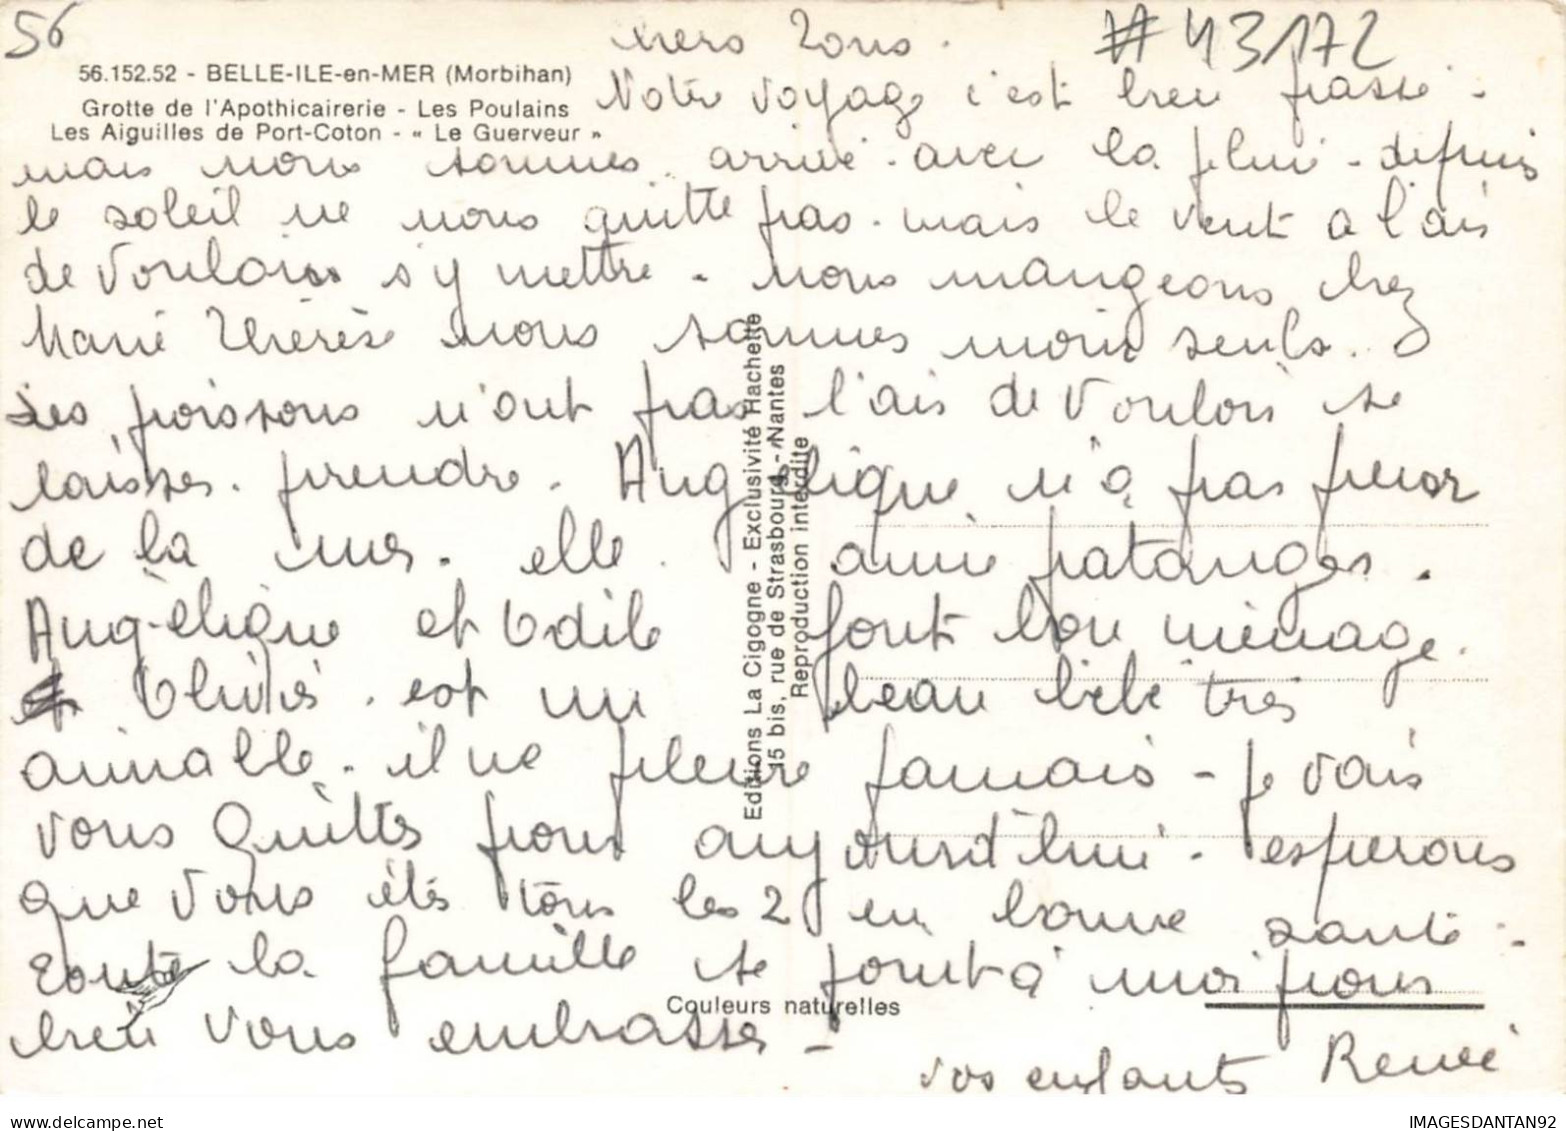 56
#43172
56.152.52 - BELLE-ILE-en-MER (Morbihan)
Grotte de l'Apothicairerie - Les Poulains
Les Aiguilles de Port-Coton - « Le Guerveur »
chers Tous.
Notre voyage c'est bien passé -
mais nous sommes arrivé. avec la pluie - depuis
le soleil ne nous quitte pas. mais le vent a l'air
de vouloir s'y mettre - nous mangeons chez
Marie Thérèse nous sommes moin seuls.
Les poissons n'ont pas l'air de vouloir se
laisser. prendre. Angélique n'a pas peur
de la mer. elle. aime patauger.
Angélique et Odile font bon ménage.
Olivier. est un beau bébé très
aimable. il ne pleure jamais - je vais
vous quitter pour aujourd'hui - esperons
que vous étés tous les 2 en bonne santé -
Toute la famille se joint à moi pour
bien vous embrasser -
vos enfants Renée
Editions La Cigogne - Exclusivité Hachette
15 bis, rue de Strasbourg - Nantes
Reproduction interdite
Couleurs naturelles
delcampe.net
IMAGESDANTAN92